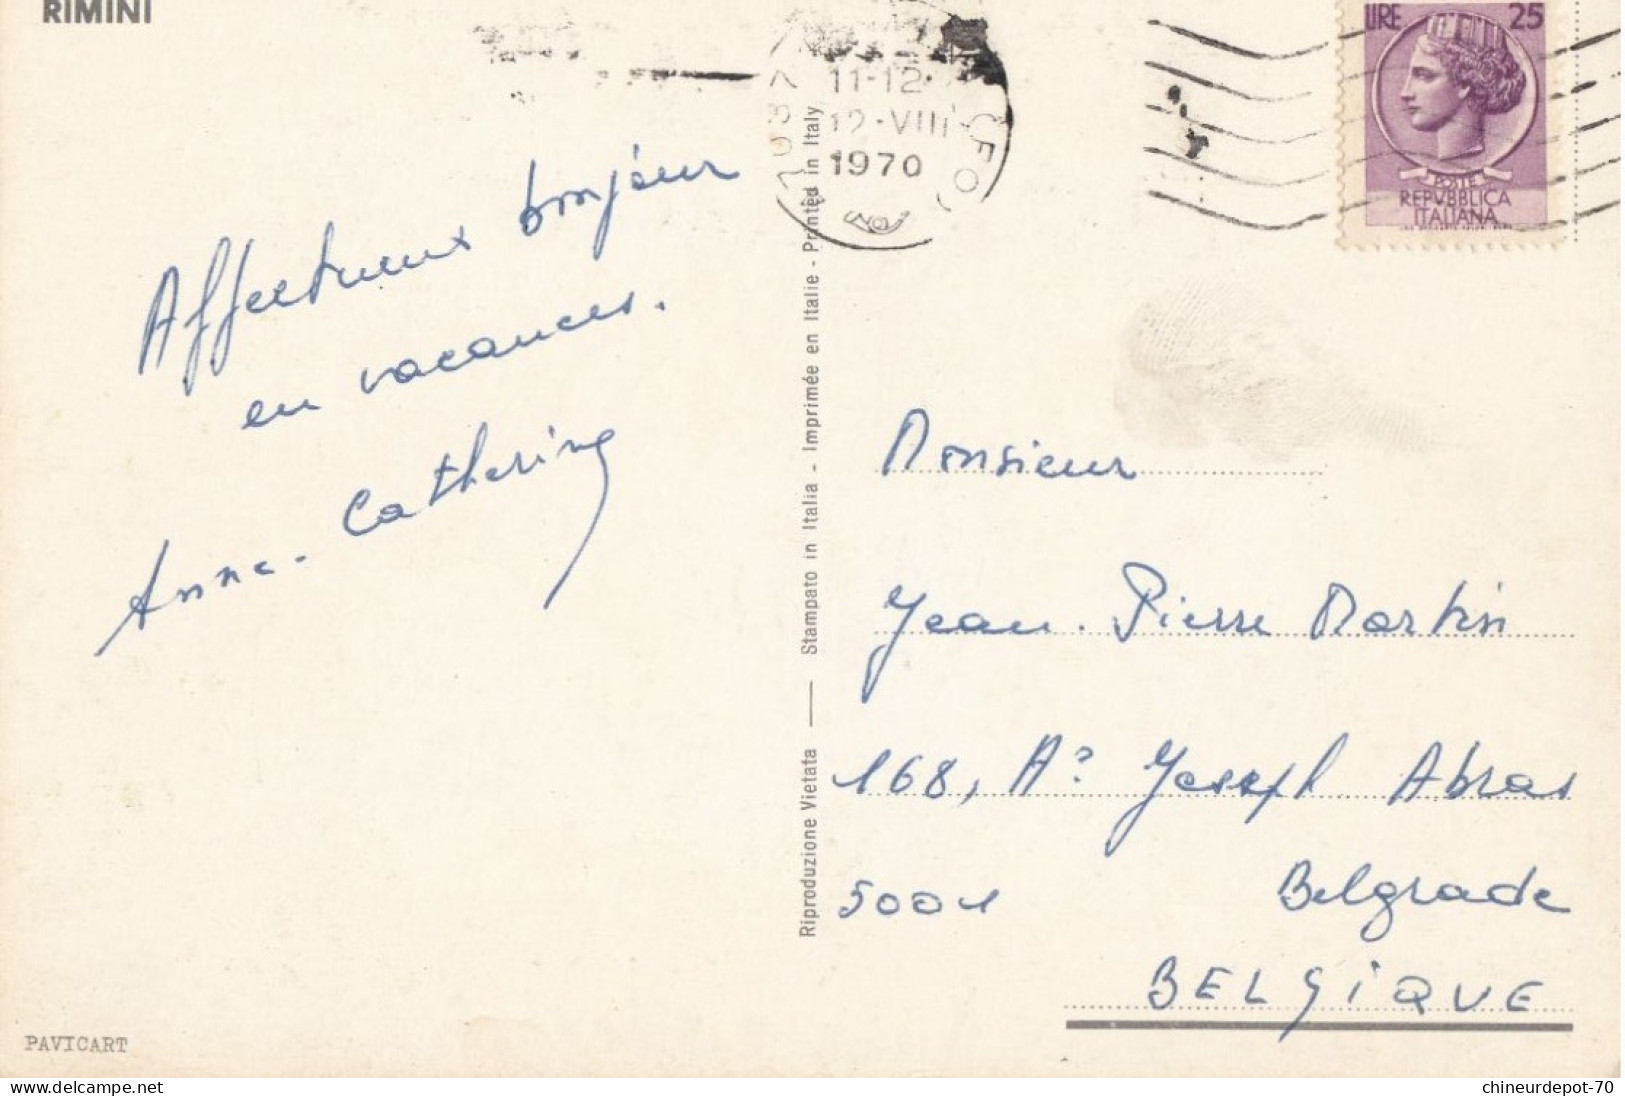 RIMINI
11-12
12·VIII
1970
(FO)
LIRE 25
POSTE
REPVBBLICA
ITALIANA
Affectueux bonjour
en vacances.
Anne-Catherine
Riproduzione Vietata — Stampato in Italia - Imprimée en Italie - Printed in Italy
Monsieur
Jean-Pierre Martin
168, Joseph Abras
5001 Belgrade
BELGIQUE
PAVICART
www.delcampe.net
chineurdepot-70